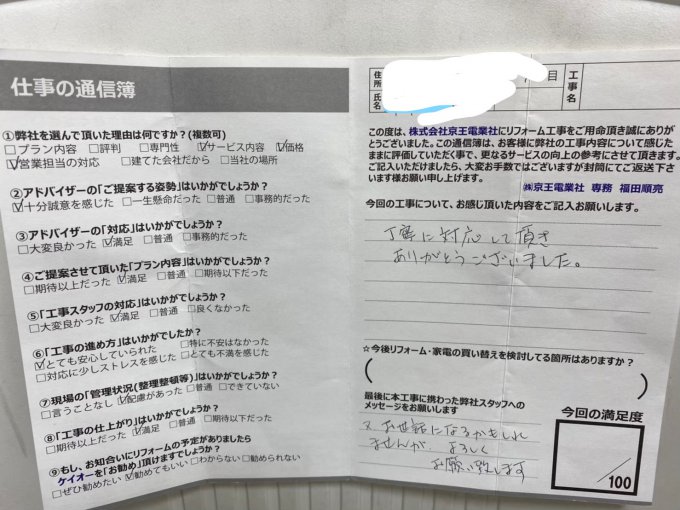 仕事の通信簿
①弊社を選んで頂いた理由は何ですか？(複数可)
□プラン内容 □評判 □専門性 ☑サービス内容 ☑価格
☑営業担当の対応 □建てた会社だから □当社の場所
②アドバイザーの「ご提案する姿勢」はいかがでしょうか？
☑十分誠意を感じた □一生懸命だった □普通 □事務的だった
③アドバイザーの「対応」はいかがでしょうか？
□大変良かった ☑満足 □普通 □事務的だった
④ご提案させて頂いた「プラン内容」はいかがでしょうか？
□期待以上だった ☑満足 □普通 □期待以下だった
⑤「工事スタッフの対応」はいかがでしょうか？
□大変良かった ☑満足 □普通 □良くなかった
⑥「工事の進め方」はいかがでしたか？
☑とても安心していられた □特に不安はなかった
□対応に少しストレスを感じた □とても不満を感じた
⑦現場の「管理状況(整理整頓等)」はいかがでしょうか？
□言うことなし ☑配慮があった □普通 □できていない
⑧「工事の仕上がり」はいかがでしょうか？
□期待以上だった ☑満足 □普通 □期待以下だった
⑨もし、お知合いにリフォームの予定がありましたら
ケイオーを「お勧め」頂けますでしょうか？
□ぜひ勧めたい ☑勧めてもいい □わからない □勧められない
住所 目
氏名
工事名
この度は、株式会社京王電業社にリフォーム工事をご用命頂き誠にありが
とうございました。この通信簿は、お客様に弊社の工事内容について感じた
ままに評価していただく事で、更なるサービスの向上の参考にさせて頂きます。
ご記入いただけましたら、大変お手数ではございますが封筒にてご返送下さ
います様お願い申し上げます。
㈱京王電業社 専務 福田順亮
今回の工事について、お感じ頂いた内容をご記入お願いします。
丁寧に対応して頂き
ありがとうございました。
☆今後リフォーム・家電の買い替えを検討してる箇所はありますか？
( )
最後に本工事に携わった弊社スタッフへの
メッセージをお願いします
又、お世話になるかもしれ
ませんが、よろしく
お願い致します
今回の満足度
/100